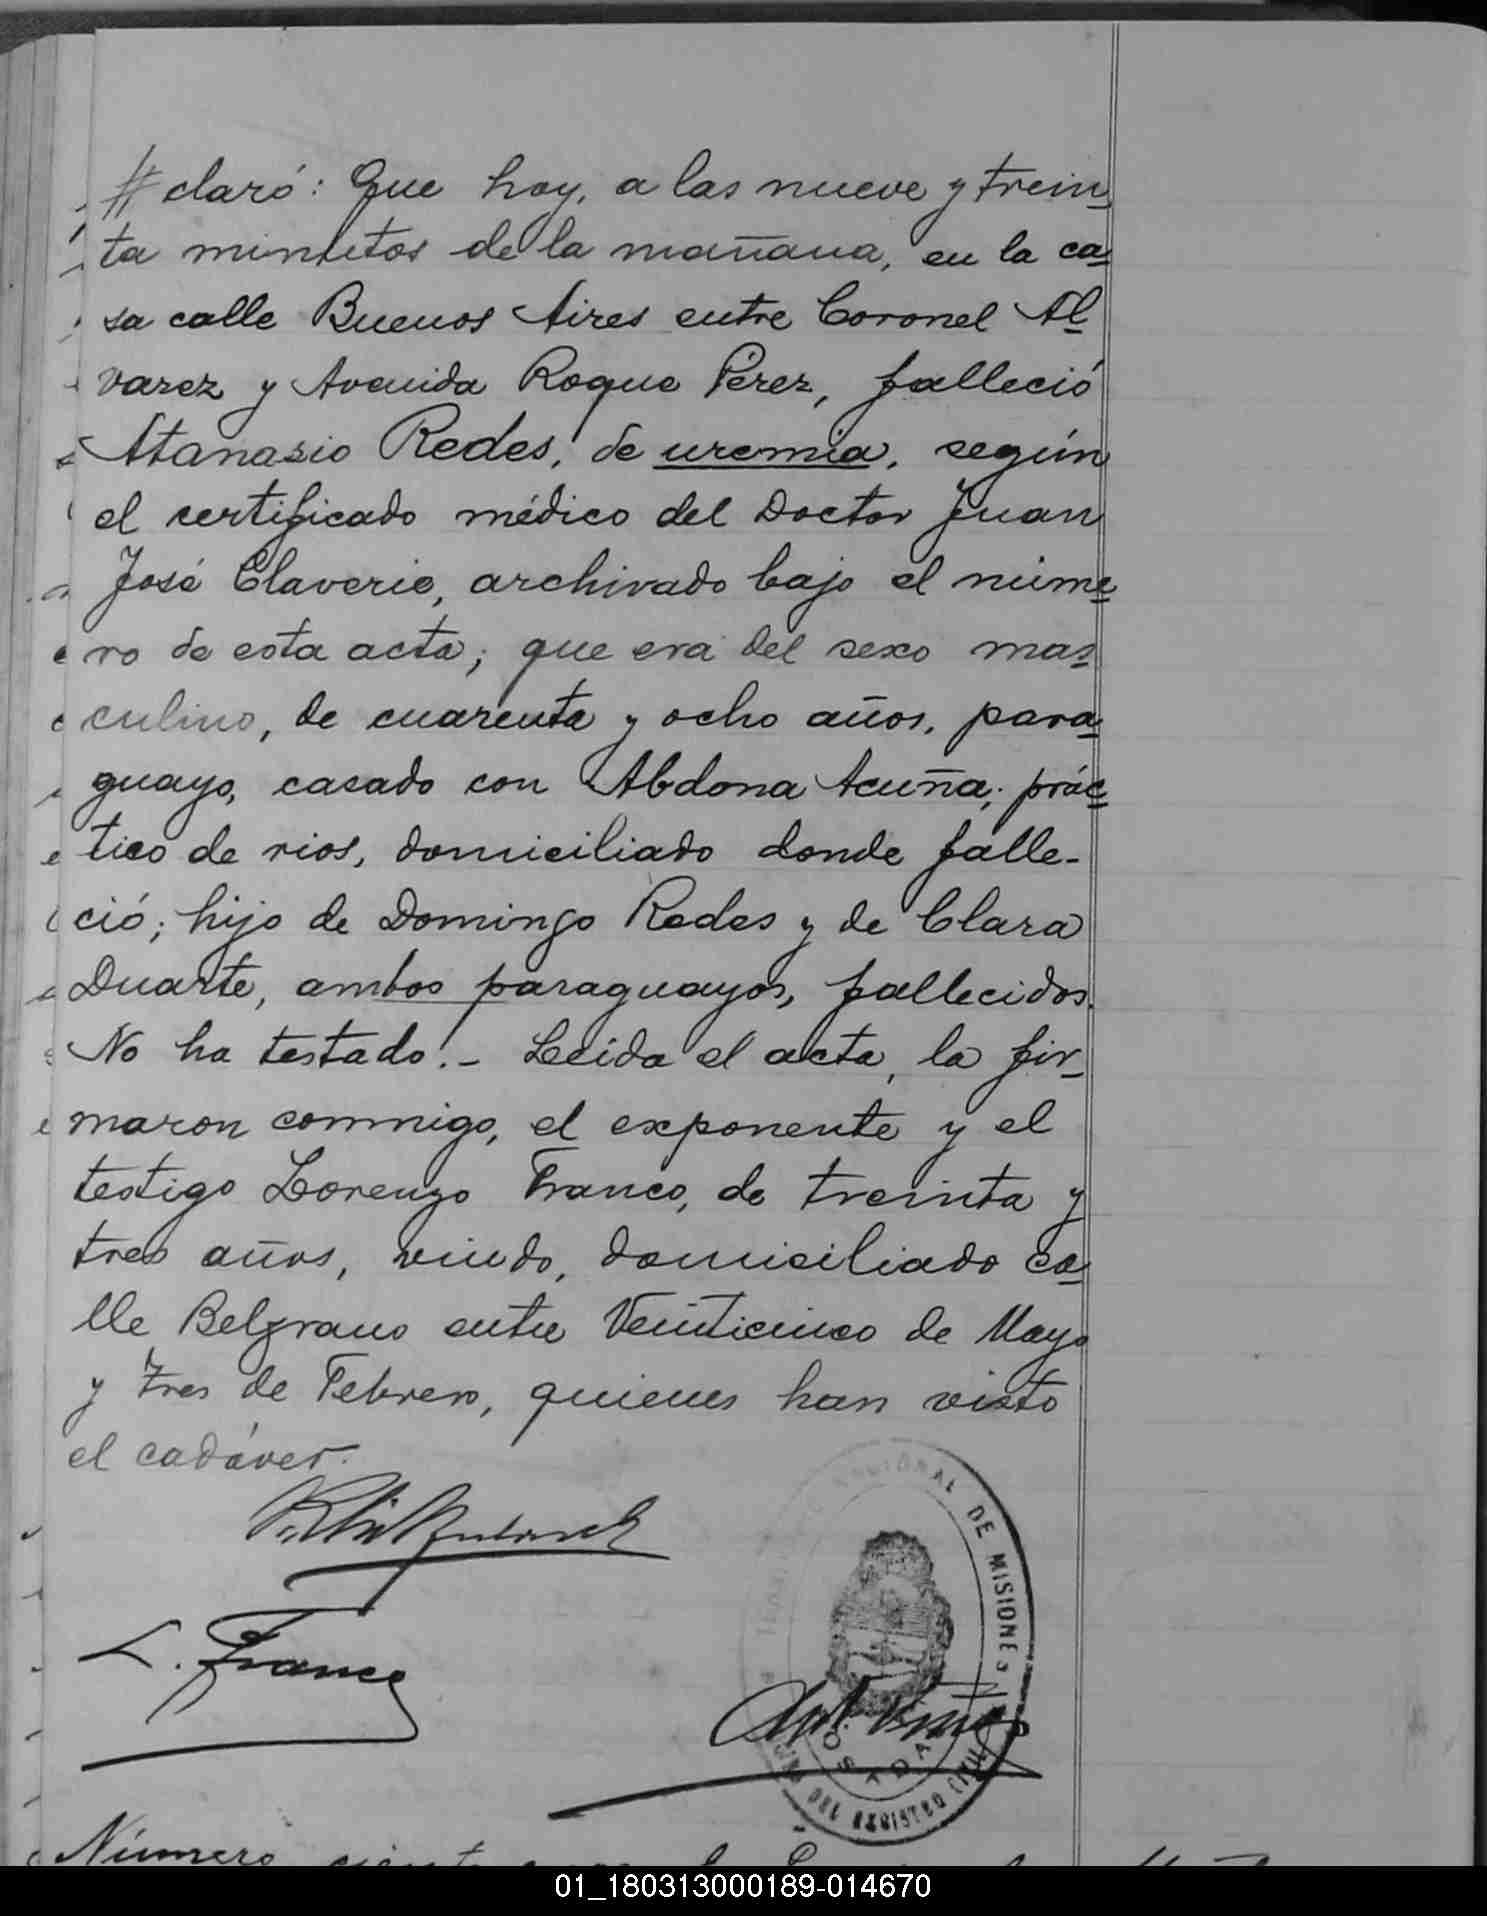 claró: Que hoy, a las nueve y trein
ta minutos de la mañana, en la ca
sa calle Buenos Aires entre Coronel Al
varez y Avenida Roque Pérez, falleció
Atanasio Redes, de uremia, según
el certificado médico del Doctor Juan
José Claverie, archivado bajo el núme
ro de esta acta; que era del sexo mas
culino, de cuarenta y ocho años, para
guayo, casado con Abdona Acuña; prác
tico de rios, domiciliado donde falle-
ció; hijo de Domingo Redes y de Clara
Duarte, ambos paraguayos, fallecidos.
No ha testado.- Leída el acta, la fir
maron conmigo, el exponente y el
testigo Lorenzo Franco, de treinta y
tres años, viudo, domiciliado ca
lle Belgrano entre Veinticinco de Mayo
y Tres de Febrero, quienes han visto
el cadáver.
L. Franco
NACIONAL DE MISIONES
DEL REGISTRO CIVIL
Número
01_180313000189-014670